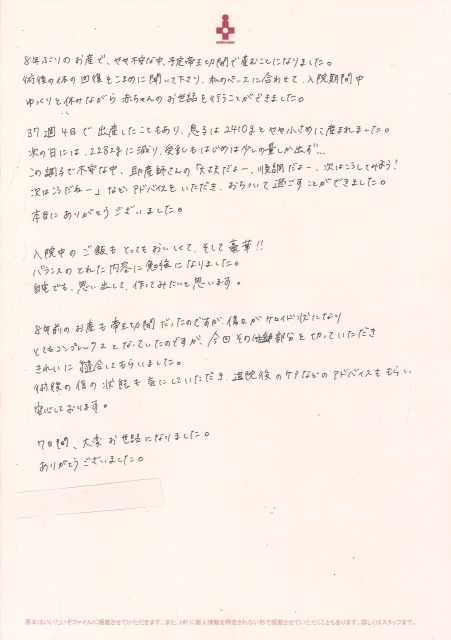 8年ぶりのお産で、やや不安な中、予定帝王切開で産むことになりました。
術後の体の回復をこまめに聞いて下さり、私のペースに合わせて、入院期間中
ゆっくりと休みながら赤ちゃんのお世話を行うことができました。
37週4日で出産したこともあり、息子は2410gとやや小さめに産まれました。
次の日には、2282gに減り、母乳もはじめは少しの量しか出ず…
この調子で不安な中、助産師さんの「大丈夫だよー、順調だよー、次はこうしてみよう!
次はこうだねー」などアドバイスをいただき、おちついて過ごすことができました。
本当にありがとうございました。
入院中のご飯もとってもおいしくて、そして豪華!!
バランスのとれた内容に勉強になりました。
自宅でも、思い出して、作ってみたいと思います。
8年前のお産も帝王切開だったのですが、傷口がケロイド状になり
とてもコンプレックスとなっていたのですが、今回その部分を切っていただき
きれいに縫合してもらいました。
術後の傷の状態も気にしていただき、退院後のケアなどのアドバイスももらい
安心しております。
7日間、大変お世話になりました。
ありがとうございました。
原本はいいたいぞファイルに掲載させていただきます。また、HPに個人情報を特定されない形で掲載させていただくこともあります。詳しくはスタッフまで。